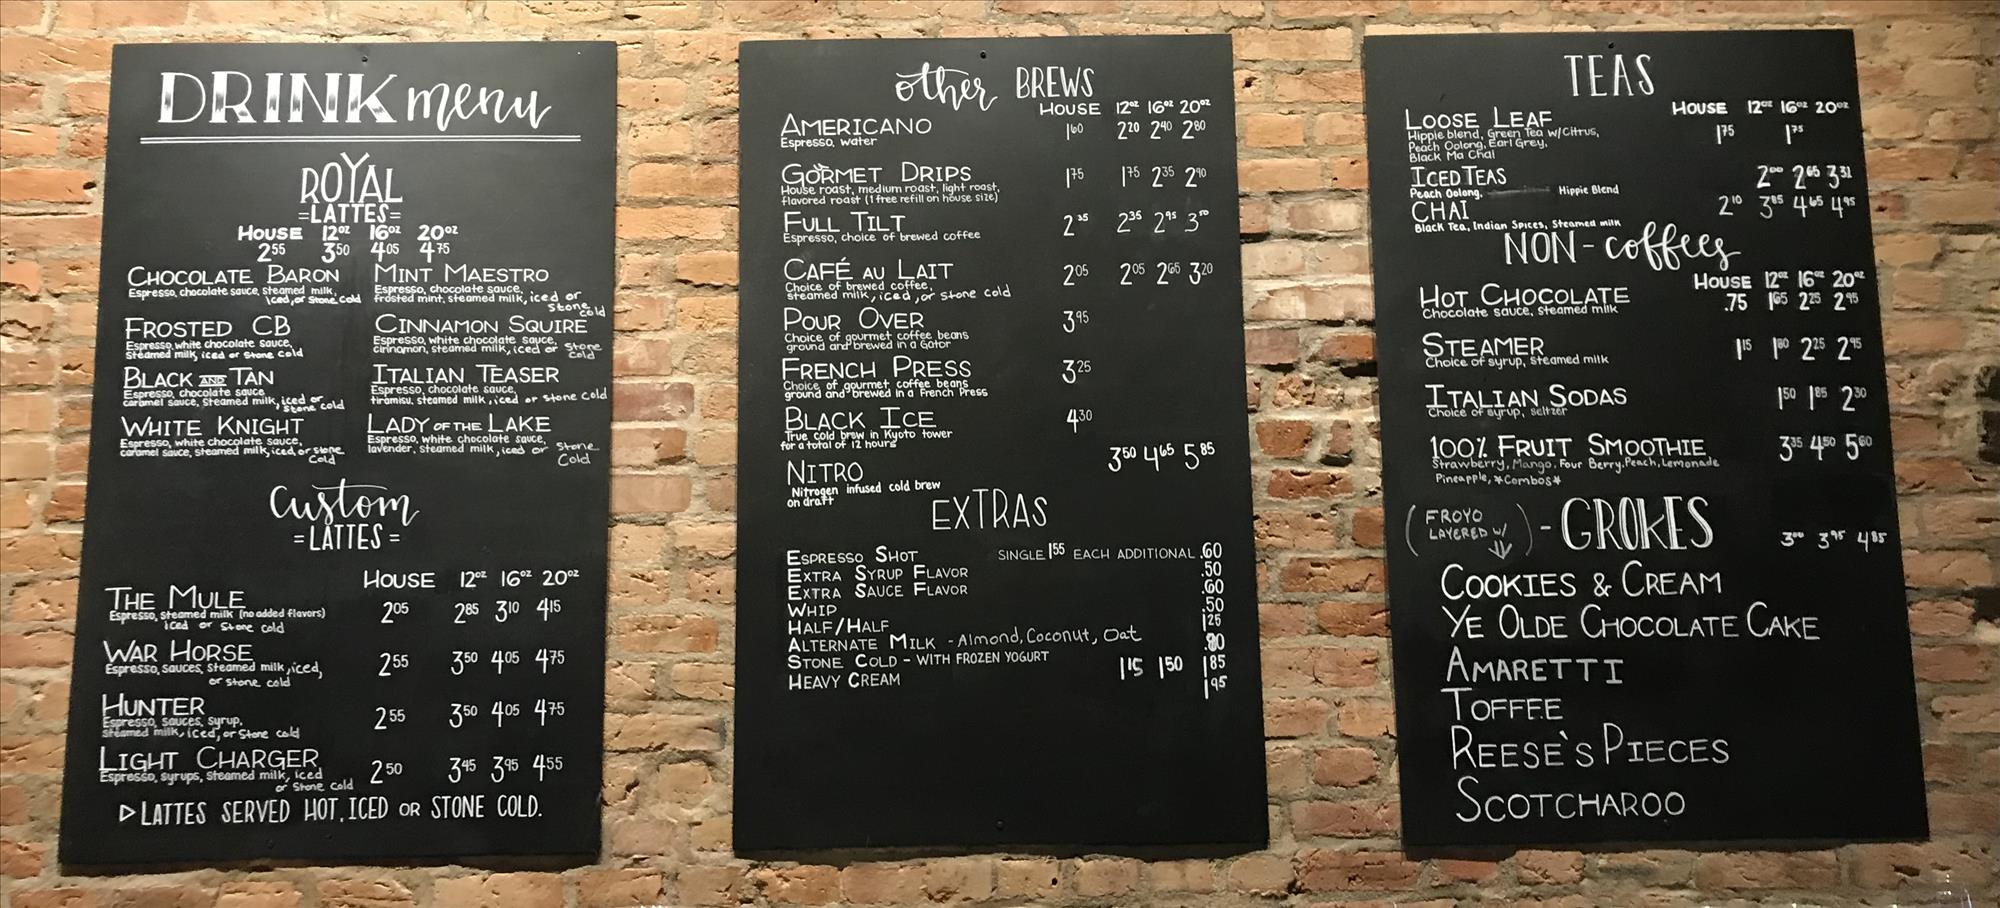 DRINK menu
ROYAL
=LATTES=
HOUSE 12oz 16oz 20oz
2.55 3.50 4.05 4.75
CHOCOLATE BARON
Espresso, chocolate sauce, steamed milk,
iced, or stone cold
MINT MAESTRO
Espresso, chocolate sauce,
frosted mint, steamed milk, iced or
stone cold
FROSTED CB
Espresso, white chocolate sauce,
Steamed milk, iced or stone cold
CINNAMON SQUIRE
Espresso, white chocolate sauce,
cinnamon, steamed milk, iced or stone
cold
BLACK AND TAN
Espresso, chocolate sauce
caramel sauce, steamed milk, iced or
stone cold
ITALIAN TEASER
Espresso, chocolate sauce,
tiramisu, steamed milk, iced or stone cold
WHITE KNIGHT
Espresso, white chocolate sauce,
caramel sauce, steamed milk, iced, or stone
cold
LADY OF THE LAKE
Espresso, white chocolate sauce,
lavender, steamed milk, iced or stone
cold
Custom
=LATTES=
HOUSE 12oz 16oz 20oz
THE MULE 2.05 2.85 3.10 4.15
Espresso, steamed milk (no added flavors)
iced or stone cold
WAR HORSE 2.55 3.50 4.05 4.75
Espresso, sauces, steamed milk, iced,
or stone cold
HUNTER 2.55 3.50 4.05 4.75
Espresso, sauces, syrup,
steamed milk, iced, or Stone cold
LIGHT CHARGER 2.50 3.45 3.95 4.55
Espresso, syrups, steamed milk, iced
or Stone cold
▷LATTES SERVED HOT, ICED OR STONE COLD.
other BREWS
HOUSE 12oz 16oz 20oz
AMERICANO 1.60 2.20 2.40 2.80
Espresso, water
GORMET DRIPS 1.75 1.75 2.35 2.90
House roast, medium roast, light roast,
flavored roast (1 free refill on house size)
FULL TILT 2.35 2.35 2.95 3.50
Espresso, choice of brewed coffee
CAFÉ AU LAIT 2.05 2.05 2.65 3.20
Choice of brewed coffee,
steamed milk, iced, or stone cold
POUR OVER 3.95
Choice of gourmet coffee beans
ground and brewed in a Gator
FRENCH PRESS 3.25
Choice of gourmet coffee beans
ground and brewed in a French Press
BLACK ICE 4.30
True cold brew in Kyoto tower
for a total of 12 hours
NITRO 3.50 4.65 5.85
Nitrogen infused cold brew
on draft
EXTRAS
ESPRESSO SHOT SINGLE 1.55 EACH ADDITIONAL .60
EXTRA SYRUP FLAVOR .50
EXTRA SAUCE FLAVOR .60
WHIP .50
HALF/HALF 1.25
ALTERNATE MILK - Almond, Coconut, Oat .80
STONE COLD - WITH FROZEN YOGURT 1.15 1.50 1.85
HEAVY CREAM 1.95
TEAS
HOUSE 12oz 16oz 20oz
LOOSE LEAF 1.75 1.75
Hippie blend, Green Tea w/Citrus,
Peach Oolong, Earl Grey,
Black Ma Chai
ICED TEAS 2.00 2.65 3.31
Peach Oolong, Hippie Blend
CHAI 2.10 3.85 4.65 4.95
Black Tea, Indian Spices, Steamed milk
NON-coffees
HOUSE 12oz 16oz 20oz
HOT CHOCOLATE .75 1.65 2.25 2.95
Chocolate sauce, steamed milk
STEAMER 1.15 1.80 2.25 2.95
Choice of syrup, steamed milk
ITALIAN SODAS 1.50 1.85 2.30
Choice of syrup, seltzer
100% FRUIT SMOOTHIE 3.35 4.50 5.60
Strawberry, Mango, Four Berry, Peach, Lemonade
Pineapple, *Combos*
(FROYO LAYERED W/) - GROKES 3.00 3.95 4.85
COOKIES & CREAM
YE OLDE CHOCOLATE CAKE
AMARETTI
TOFFEE
REESE'S PIECES
SCOTCHAROO